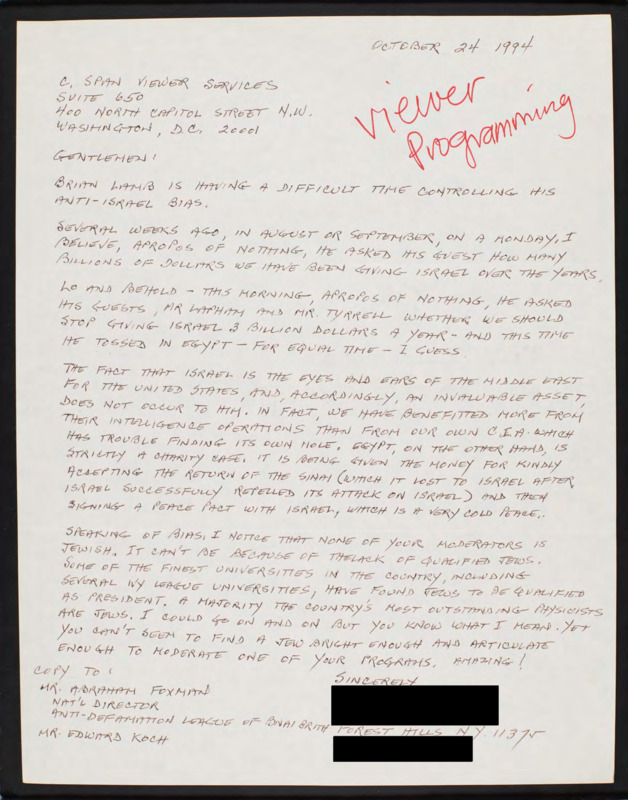 OCTOBER 24 1994
C. SPAN VIEWER SERVICES
SUITE 650
400 NORTH CAPITOL STREET N.W.
WASHINGTON, D.C. 20001
viewer
Programming
GENTLEMEN:
BRIAN LAMB IS HAVING A DIFFICULT TIME CONTROLLING HIS
ANTI-ISRAEL BIAS.
SEVERAL WEEKS AGO, IN AUGUST OR SEPTEMBER, ON A MONDAY, I
BELIEVE, APROPOS OF NOTHING, HE ASKED HIS GUEST HOW MANY
BILLIONS OF DOLLARS WE HAVE BEEN GIVING ISRAEL OVER THE YEARS.
LO AND BEHOLD - THIS MORNING, APROPOS OF NOTHING, HE ASKED
HIS GUESTS, MR LAPHAM AND MR. TYRRELL WHETHER WE SHOULD
STOP GIVING ISRAEL 3 BILLION DOLLARS A YEAR - AND THIS TIME
HE TOSSED IN EGYPT - FOR EQUAL TIME - I GUESS.
THE FACT THAT ISRAEL IS THE EYES AND EARS OF THE MIDDLE EAST
FOR THE UNITED STATES, AND, ACCORDINGLY, AN INVALUABLE ASSET,
DOES NOT OCCUR TO HIM. IN FACT, WE HAVE BENEFITTED MORE FROM
THEIR INTELLIGENCE OPERATIONS THAN FROM OUR OWN C.I.A. WHICH
HAS TROUBLE FINDING ITS OWN MOLE. EGYPT, ON THE OTHER HAND, IS
STRICTLY A CHARITY CASE. IT IS BEING GIVEN THE MONEY FOR KINDLY
ACCEPTING THE RETURN OF THE SINAI (WHICH IT LOST TO ISRAEL AFTER
ISRAEL SUCCESSFULLY REPELLED ITS ATTACK ON ISRAEL) AND THEN
SIGNING A PEACE PACT WITH ISRAEL, WHICH IS A VERY COLD PEACE.
SPEAKING OF BIAS, I NOTICE THAT NONE OF YOUR MODERATORS IS
JEWISH. IT CAN'T BE BECAUSE OF THE LACK OF QUALIFIED JEWS.
SOME OF THE FINEST UNIVERSITIES IN THE COUNTRY, INCLUDING
SEVERAL IVY LEAGUE UNIVERSITIES, HAVE FOUND JEWS TO BE QUALIFIED
AS PRESIDENT. A MAJORITY THE COUNTRY'S MOST OUTSTANDING PHYSICISTS
ARE JEWS. I COULD GO ON AND ON BUT YOU KNOW WHAT I MEAN. YET
YOU CAN'T SEEM TO FIND A JEW BRIGHT ENOUGH AND ARTICULATE
ENOUGH TO MODERATE ONE OF YOUR PROGRAMS. AMAZING!
SINCERELY
COPY TO:
MR. ABRAHAM FOXMAN
NAT'L DIRECTOR
ANTI-DEFAMATION LEAGUE OF BNAI BRITH
FOREST HILLS N.Y. 11375
MR. EDWARD KOCH